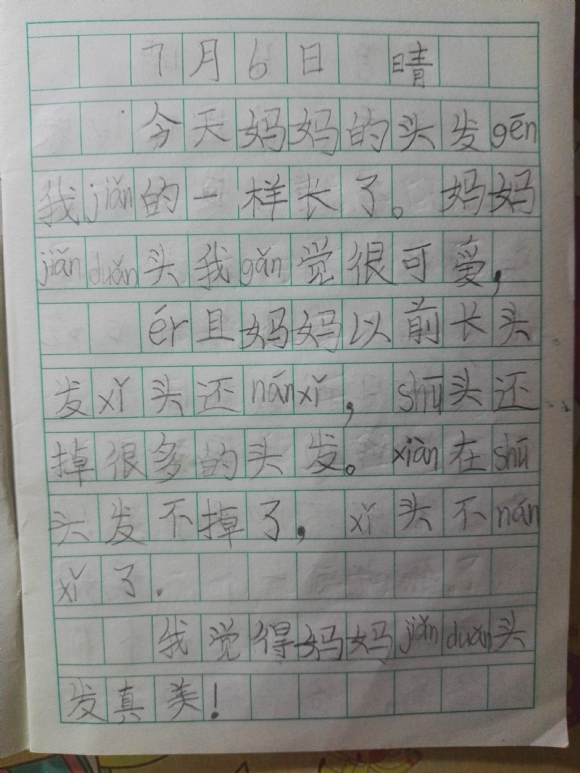 7月6日 晴
今天妈妈的头发gēn
我jiǎn的一样长了。妈妈
jiǎn duǎn头我gǎn觉很可爱,
ér且妈妈以前长头
发xǐ头还nánxǐ,shū头还
掉很多的头发。xiàn在shū
头发不掉了,xǐ头不nán
xǐ了.
我觉得妈妈jiǎn duǎn头
发真美!